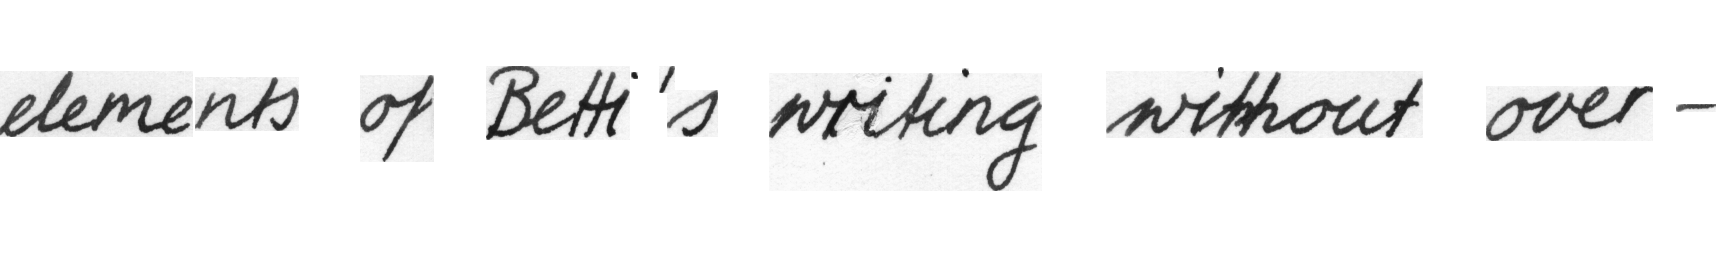 elements of Betti's writing without over-